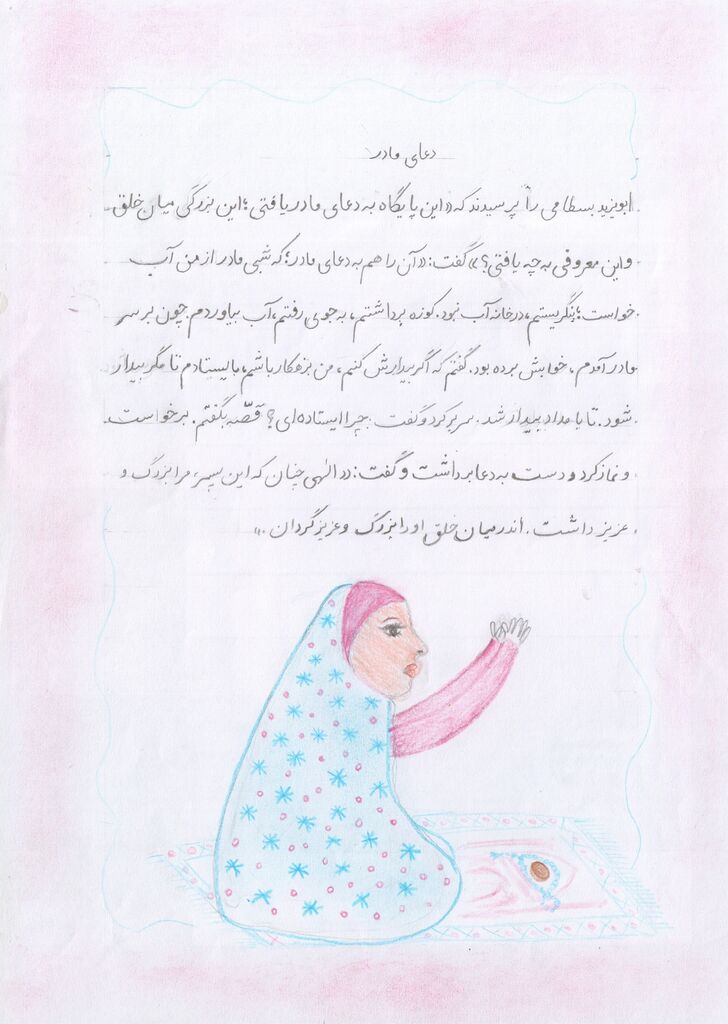 دعای مادر
ابویزید بسطامی را پرسیدند که «این پایگاه به دعای مادر یافتی؛ این بزرگی میان خلق
و این معروفی به چه یافتی؟» گفت: «آن را هم به دعای مادر؛ که شبی مادر از من آب
خواست؛ بنگریستم، در خانه آب نبود. کوزه برداشتم، به جوی رفتم، آب بیاوردم. چون بر سر
مادر آمدم، خوابش برده بود. گفتم که اگر بیدارش کنم، من بزهکار باشم، بایستادم تا مگر بیدار
شود. تا بامداد بیدار شد. سر بر کرد و گفت چرا ایستاده‌ای؟ قصّه بگفتم. برخواست
و نماز کرد و دست به دعا برداشت و گفت: «الهی چنان که این پسر، مرا بزرگ و
عزیز داشت. اندر میان خلق او را بزرگ و عزیز گردان.»